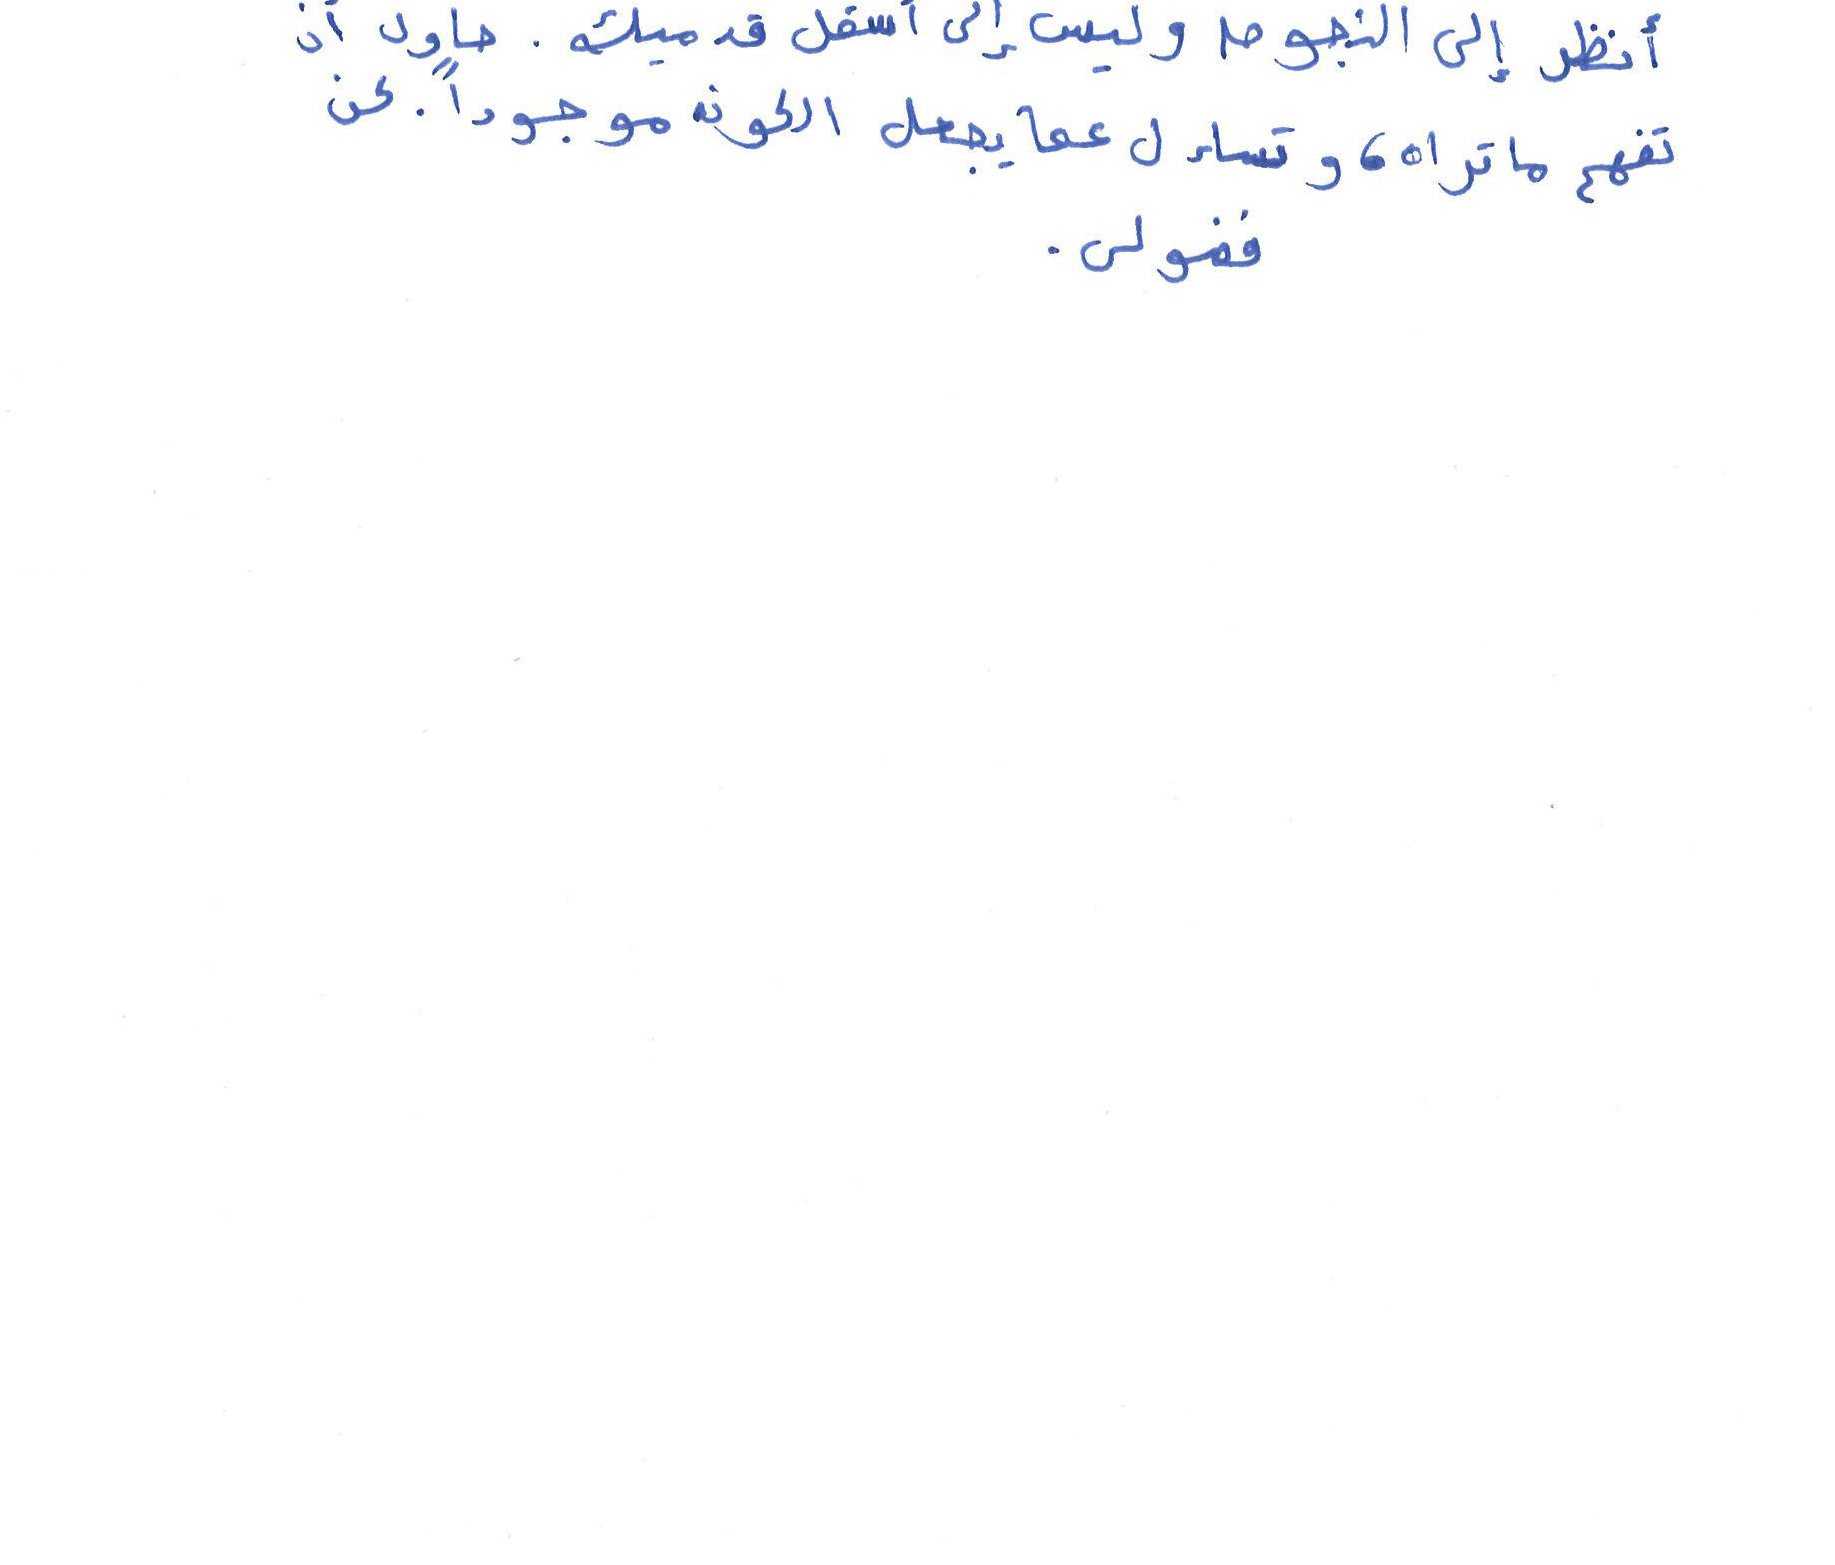 أنظر إلى النجوم وليس إلى أسفل قدميك. حاول أن
تفهم ما تراه، وتساءل عما يجعل الكون موجوداً. كن
فضولى.